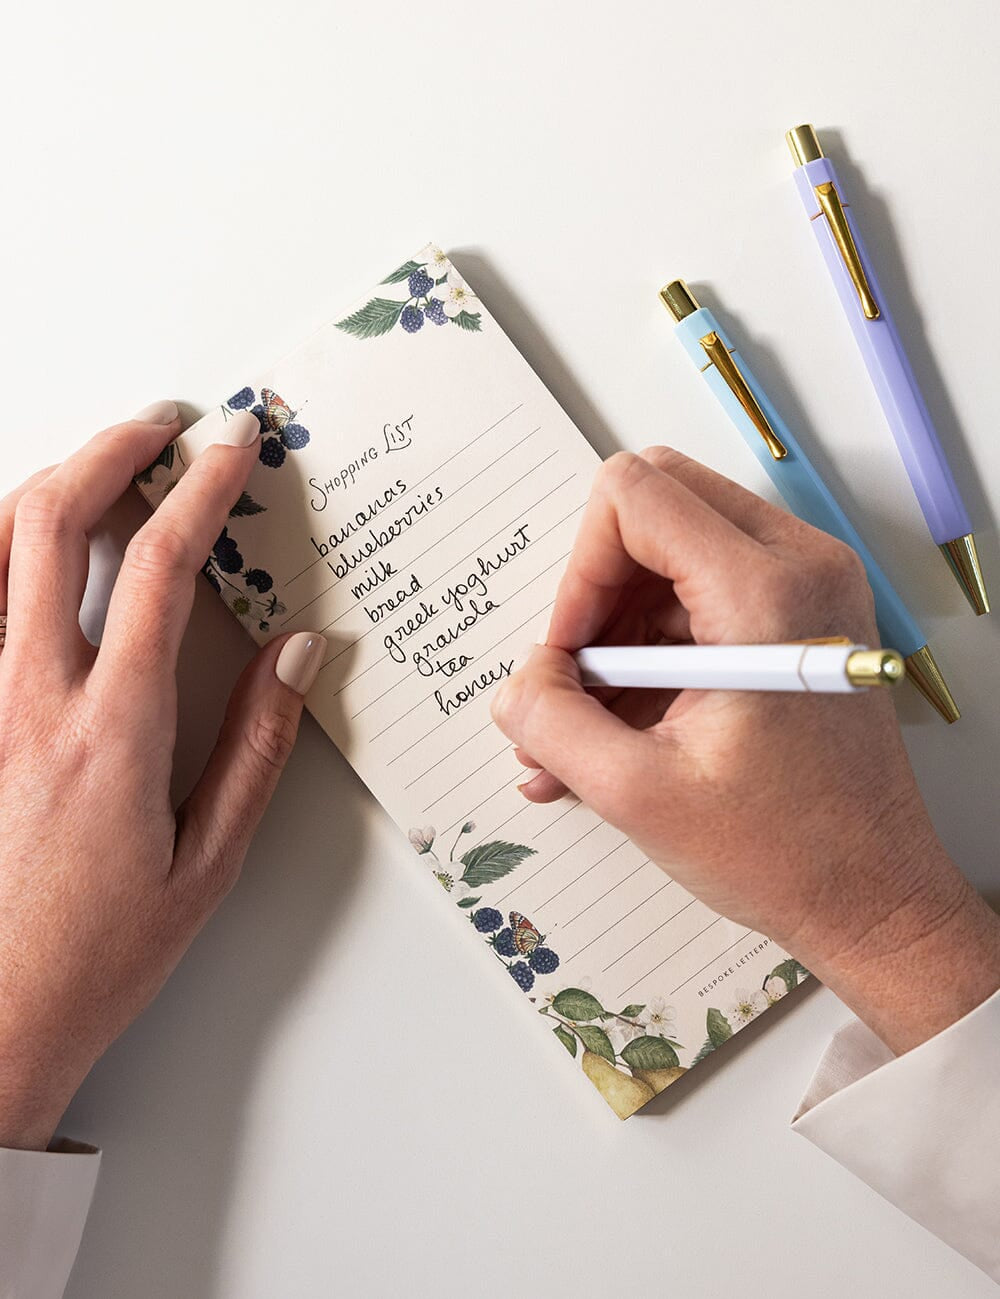 Shopping List
bananas
blueberries
milk
bread
greek yoghurt
granola
tea
BESPOKE